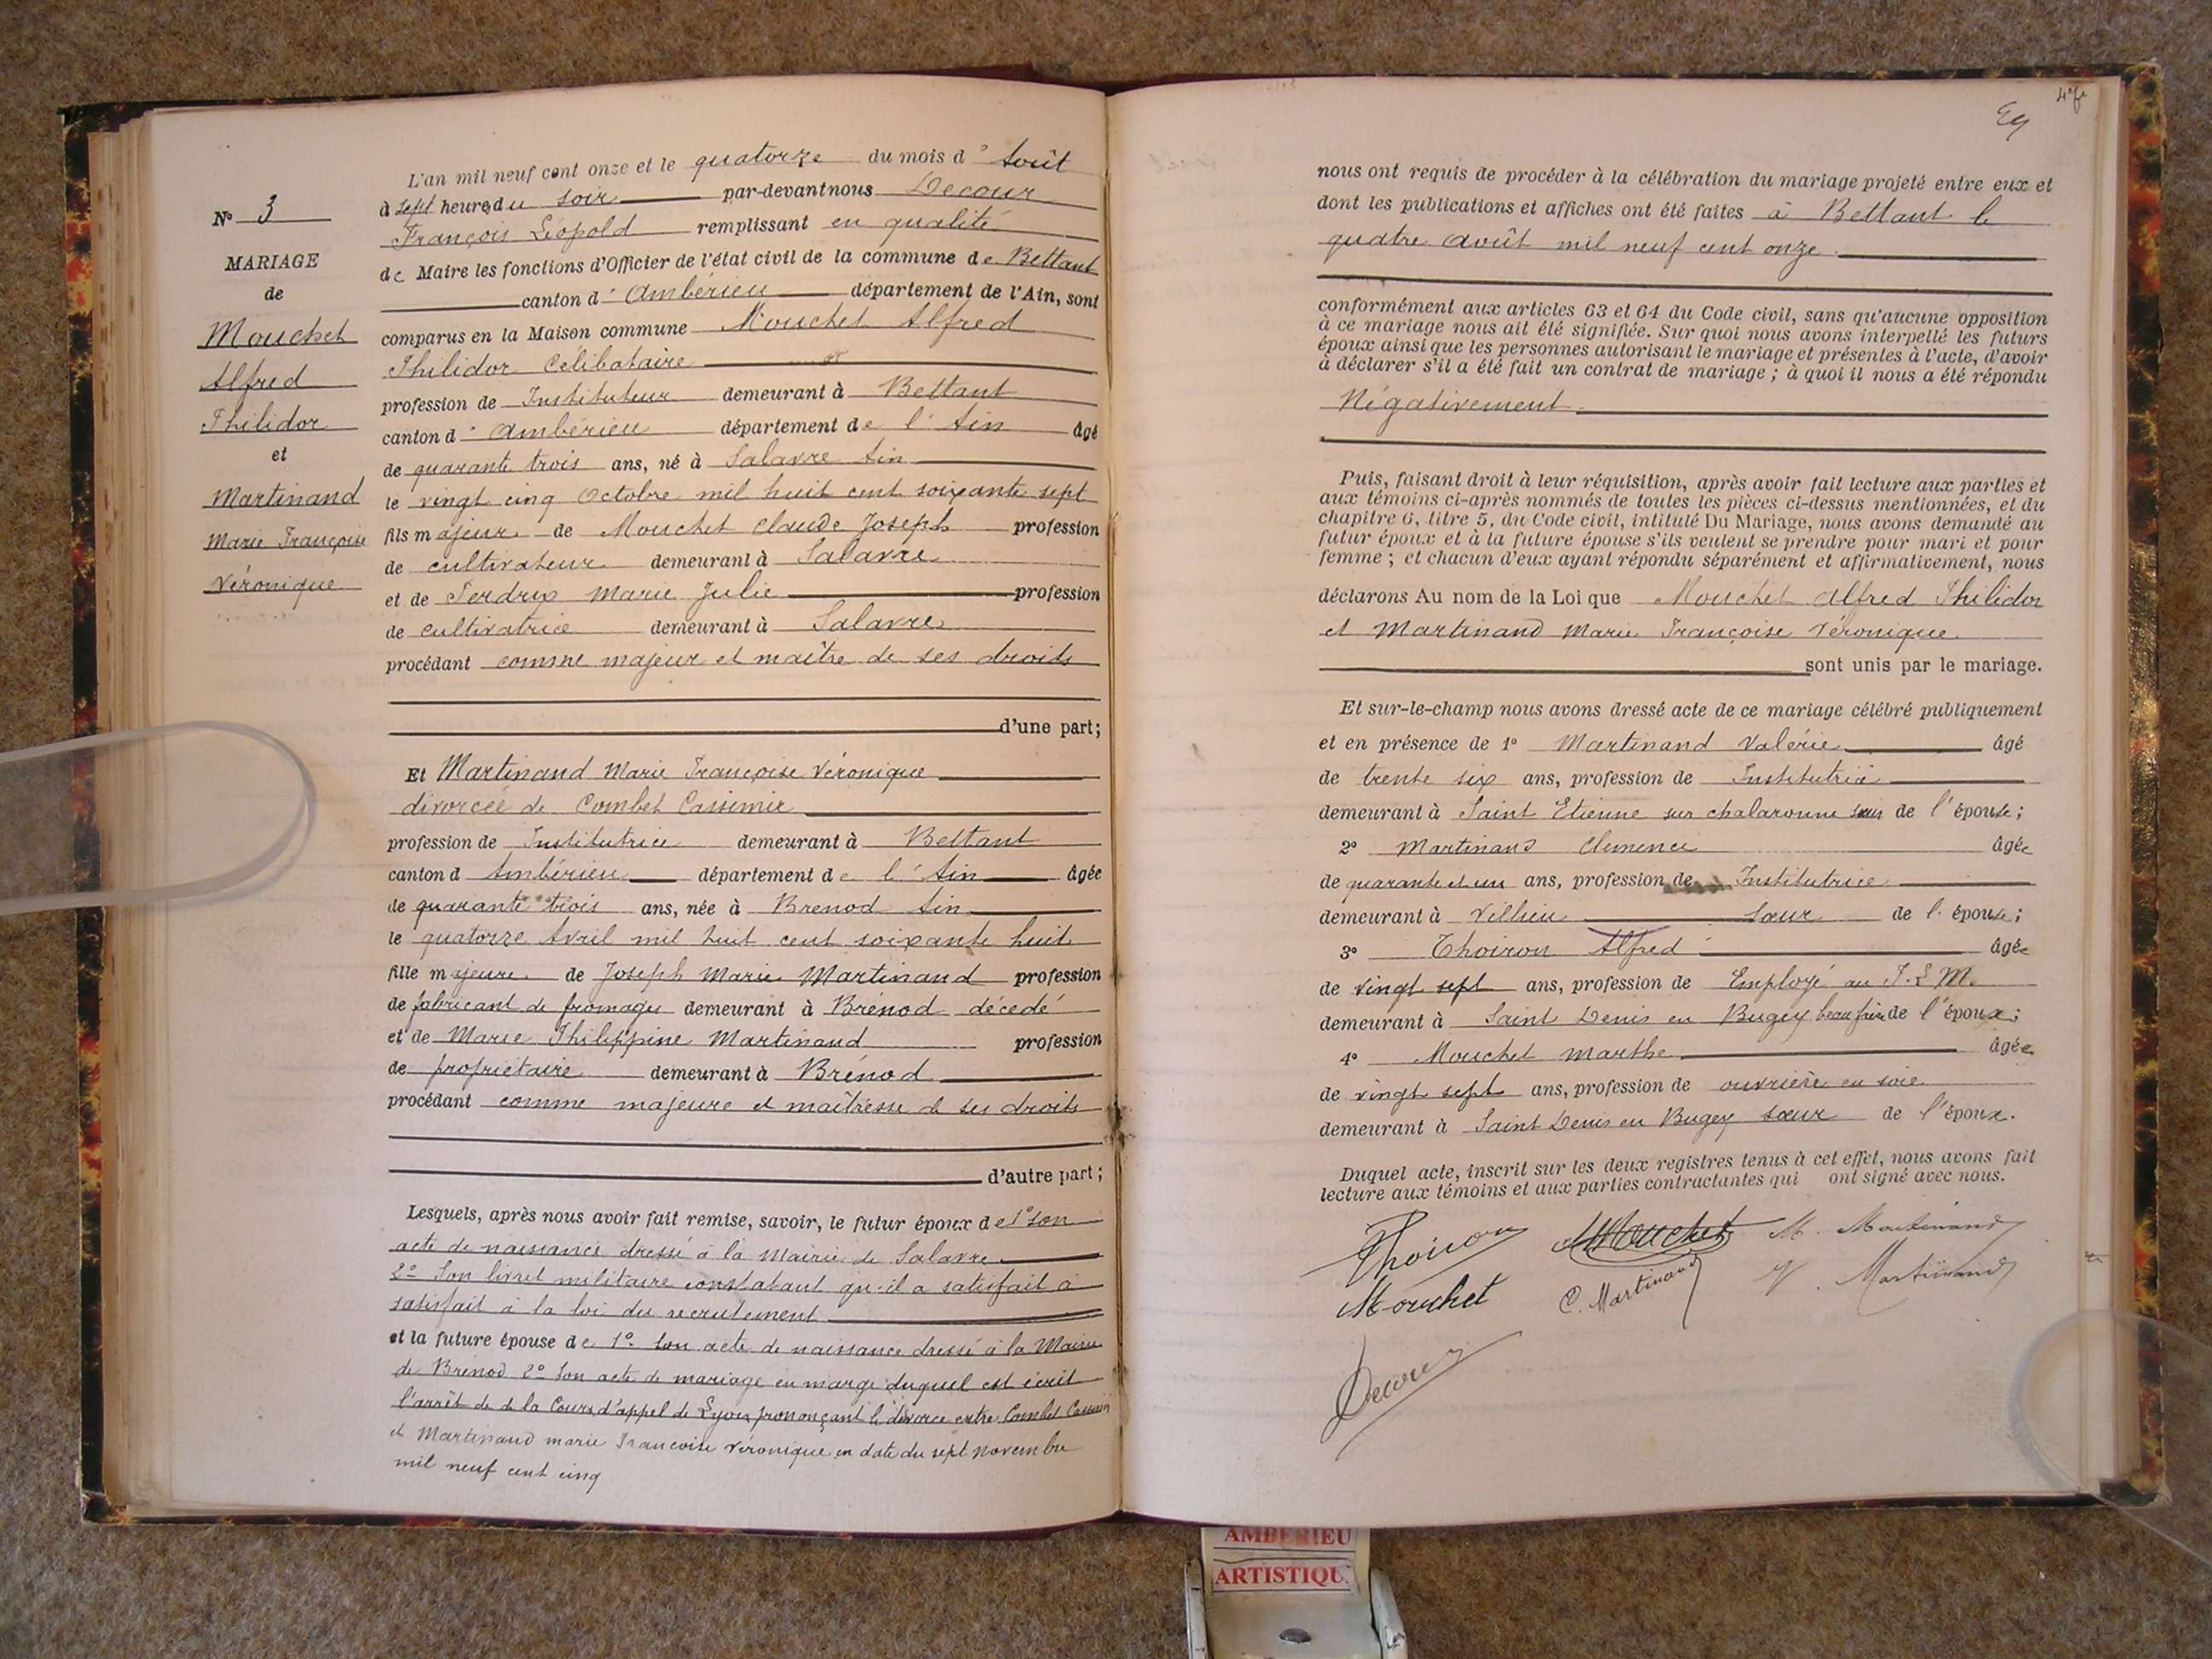 N° 3
MARIAGE
de
Mouchet
Alfred
Philidor
et
Martinand
Marie Françoise
Véronique
L'an mil neuf cent onze et le quatorze du mois d'Août
à sept heures du soir par-devant nous Decour
François Léopold remplissant en qualité
de Maire les fonctions d'Officier de l'état civil de la commune de Bettant
canton d'Ambérieu département de l'Ain, sont
comparus en la Maison commune Mouchet Alfred
Philidor Célibataire
profession de Instituteur demeurant à Bettant
canton d'Ambérieu département de l'Ain âgé
de quarante trois ans, né à Salavre Ain
le vingt cinq Octobre mil huit cent soixante sept
fils majeur de Mouchet Claude Joseph profession
de cultivateur demeurant à Salavre
et de Perdrix Marie Julie profession
de cultivatrice demeurant à Salavre
procédant comme majeur et maître de ses droits
d'une part;
Et Martinand Marie Françoise Véronique
divorcée de Combet Cassimir
profession de Institutrice demeurant à Bettant
canton d Ambérieu département de l'Ain âgée
de quarante trois ans, née à Brenod Ain
le quatorze Avril mil huit cent soixante huit
fille majeure de Joseph Marie Martinand profession
de fabricant de fromages demeurant à Brénod décédé
et de Marie Philippine Martinand profession
de propriétaire demeurant à Brénod
procédant comme majeure et maîtresse de ses droits
d'autre part;
Lesquels, après nous avoir fait remise, savoir, le futur époux de 1° son
acte de naissance dressé à la Mairie de Salavre
2° Son livret militaire constatant qu'il a satisfait à
satisfait à la loi du recrutement
et la future épouse de 1° son acte de naissance dressé à la Mairie
de Brenod 2° Son acte de mariage en marge duquel est écrit
l'arrêt de de la Cours d'appel de Lyon prononçant le divorce entre Combet Cassimir
et Martinand marie Francoise Véronique en date du sept novembre
mil neuf cent cinq
nous ont requis de procéder à la célébration du mariage projeté entre eux et
dont les publications et affiches ont été faites à Bettant le
quatre août mil neuf cent onze
conformément aux articles 63 et 64 du Code civil, sans qu'aucune opposition
à ce mariage nous ait été signifiée. Sur quoi nous avons interpellé les futurs
époux ainsi que les personnes autorisant le mariage et présentes à l'acte, d'avoir
à déclarer s'il a été fait un contrat de mariage; à quoi il nous a été répondu
Négativement
Puis, faisant droit à leur réquisition, après avoir fait lecture aux parties et
aux témoins ci-après nommés de toutes les pièces ci-dessus mentionnées, et du
chapitre 6, titre 5, du Code civil, intitulé Du Mariage, nous avons demandé au
futur époux et à la future épouse s'ils veulent se prendre pour mari et pour
femme; et chacun d'eux ayant répondu séparément et affirmativement, nous
déclarons Au nom de la Loi que Mouchet Alfred Philidor
et Martinand Marie Françoise Véronique
sont unis par le mariage.
Et sur-le-champ nous avons dressé acte de ce mariage célébré publiquement
et en présence de 1° Martinand Valérie âgé
de trente six ans, profession de Institutrice
demeurant à Saint Etienne sur chalaronne sœur de l'épouse;
2° Martinand Clemence âgée
de quarante et un ans, profession de Institutrice
demeurant à Villieu sœur de l'épouse;
3° Thoiron Alfred âgée
de vingt sept ans, profession de Employé au P.L.M.
demeurant à Saint Denis en Bugey beau frère de l'époux;
4° Mouchet Marthe âgée
de vingt sept ans, profession de ouvrière en soie
demeurant à Saint Denis en Bugey sœur de l'époux.
Duquel acte, inscrit sur les deux registres tenus à cet effet, nous avons fait
lecture aux témoins et aux parties contractantes qui ont signé avec nous.
Thoiron AMouchet M. Martinand
Mouchet C. Martinand V. Martinand
Decour
AMBERIEU
ARTISTIQU